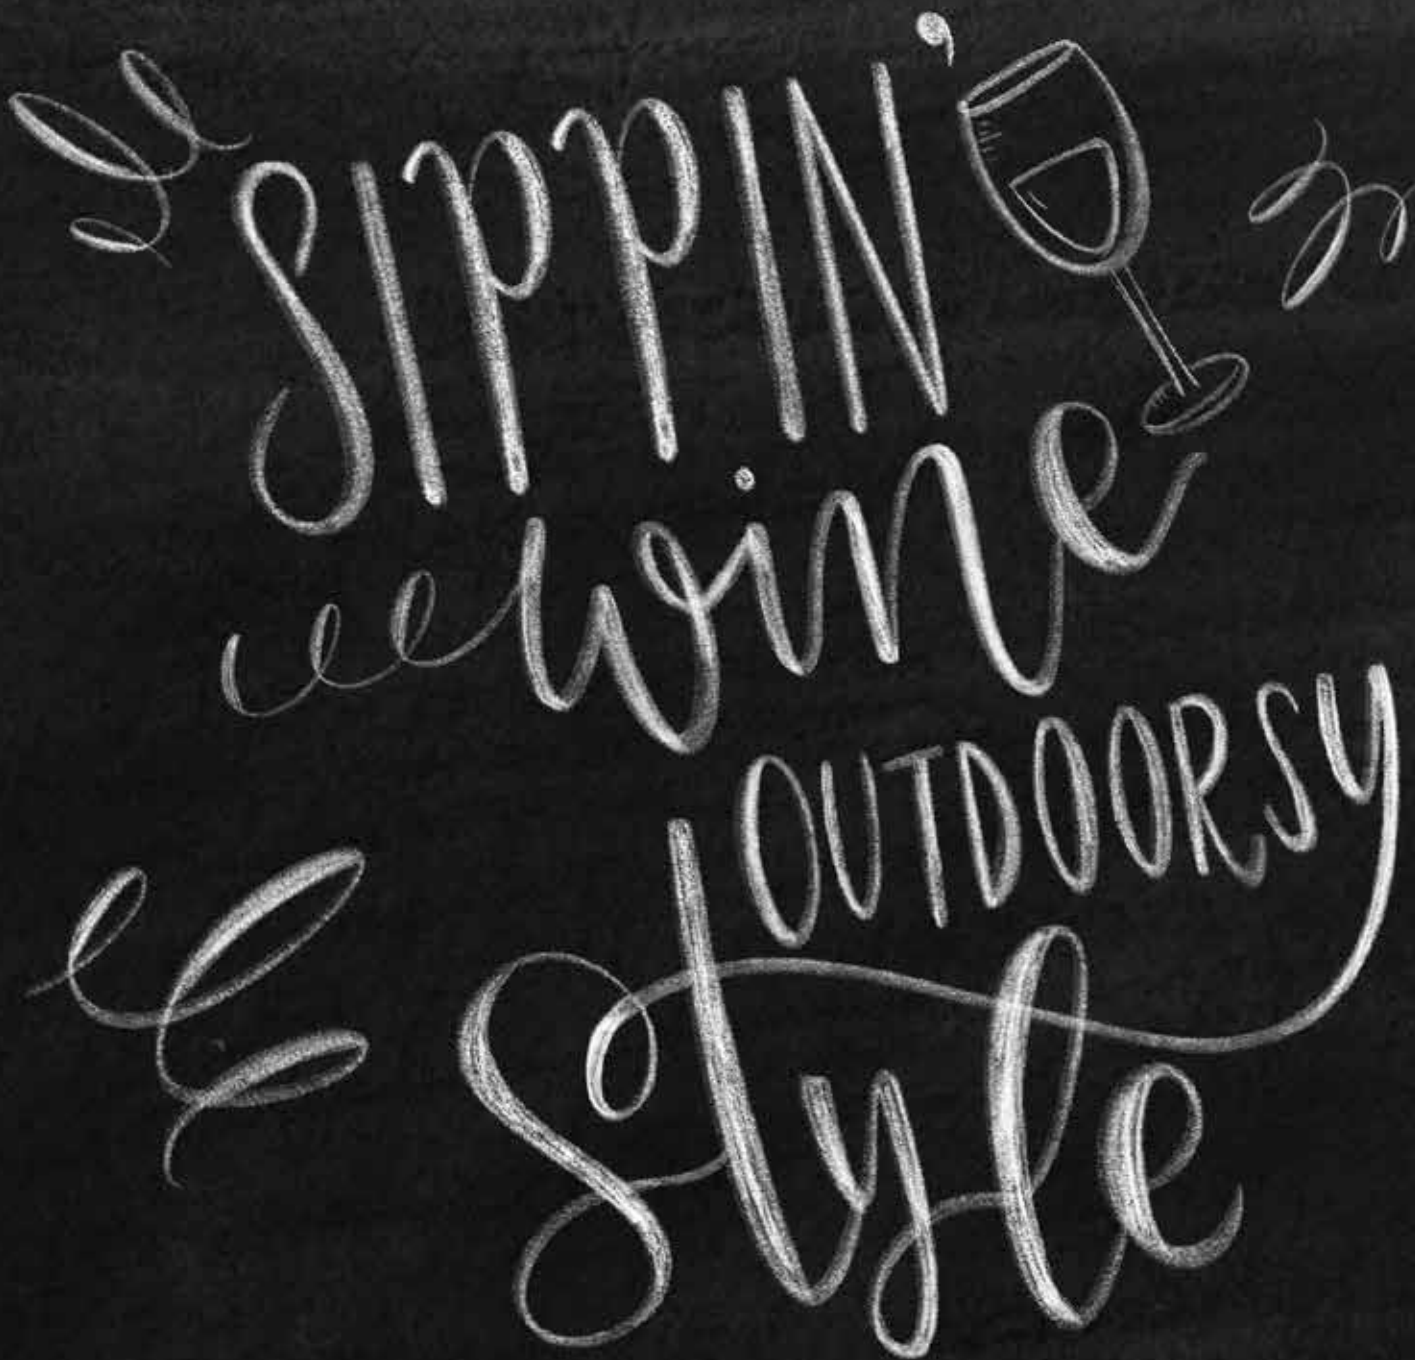 SIPPIN'
wine
OUTDOORSY
style